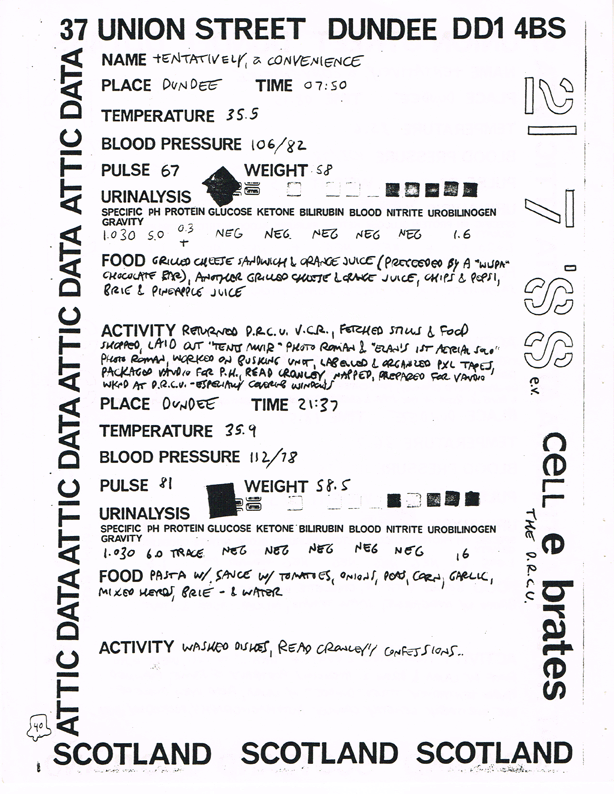 37 UNION STREET DUNDEE DD1 4BS
ATTIC DATA ATTIC DATA ATTIC DATA ATTIC DATA ATTIC DATA
NAME tENTATIVELY, a CONVENIENCE
PLACE DUNDEE TIME 07:50
TEMPERATURE 35.5
BLOOD PRESSURE 106/82
PULSE 67 WEIGHT 58
URINALYSIS
SPECIFIC PH PROTEIN GLUCOSE KETONE BILIRUBIN BLOOD NITRITE UROBILINOGEN
GRAVITY
1.030 5.0 0.3 + NEG NEG. NEG NEG NEG 1.6
FOOD GRILLED CHEESE SANDWICH & ORANGE JUICE (PRECEEDED BY A "WUPA"
CHOCOLATE BAR), ANOTHER GRILLED CHEESE & ORANGE JUICE, CHIPS & PEPSI,
BRIE & PINEAPPLE JUICE
ACTIVITY RETURNED D.R.C.U. V.C.R., FETCHED STILLS & FOOD
SHOPPED, LAID OUT "TENTS MUIR" PHOTO ROMAN & "ELAN'S 1ST AERIAL SOLO"
PHOTO ROMAN, WORKED ON BUSKING UNIT, LABELLED & ORGANIZED PXL TAPES,
PACKAGED VAUDIO FOR P.H., READ CROWLEY, NAPPED, PREPARED FOR VAUDIO
WKND AT D.R.C.U. - ESPECIALLY COVERING WINDOWS
PLACE DUNDEE TIME 21:37
TEMPERATURE 35.9
BLOOD PRESSURE 112/78
PULSE 81 WEIGHT 58.5
URINALYSIS
SPECIFIC PH PROTEIN GLUCOSE KETONE BILIRUBIN BLOOD NITRITE UROBILINOGEN
GRAVITY
1.030 6.0 TRACE NEG NEG NEG NEG NEG 16
FOOD PASTA W/ SAUCE W/ TOMATOES, ONIONS, PEAS, CORN, GARLIC,
MIXED HERBS, BRIE - & WATER
ACTIVITY WASHED DISHES, READ CROWLEY'S CONFESSIONS..
21 7 'SS
e.v.
ceLL e brates
THE D.R.C.U.
40
SCOTLAND SCOTLAND SCOTLAND